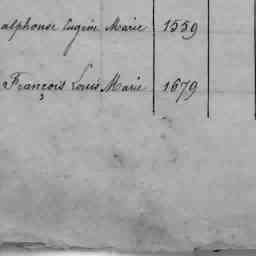 alphonse Eugène Marie 1559
François Louis Marie 1679